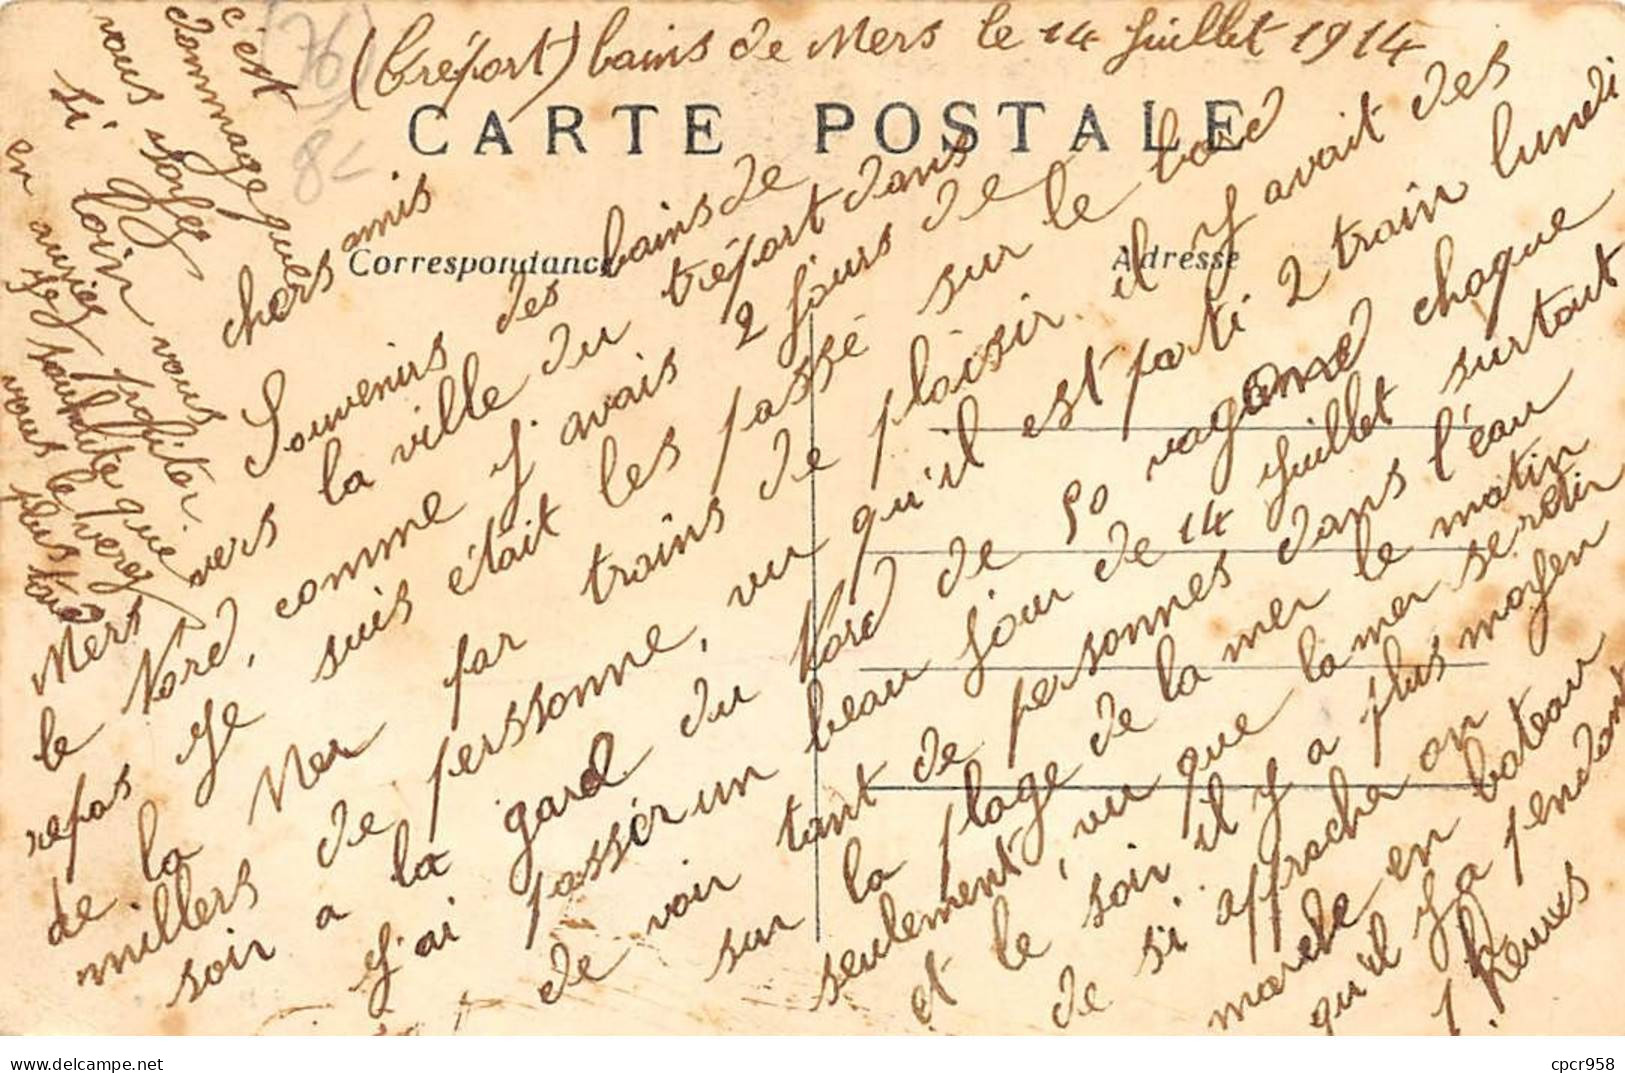 (tréport) bains de Mers le 14 Juillet 1914
CARTE POSTALE
Correspondance
Adresse
76
8
chers amis
Souvenirs des bains de
Mers vers la ville du tréport dans
le Nord, comme J'avais 2 Jours de
repas Je suis était les passé sur le bord
de la Mer par trains de plaisir il y avait des
millers de perssonne, vu qu'il est parti 2 train lundi
soir a la gard du Nord de 50 vagons chaque
J'ai passér un beau Jour de 14 Juillet surtout
de voir tant de personnes dans l'éau
sur la plage de la mer le matin
seulement, vu que la mer se retir
et le soir il y a plus moyen
de si approcher on
marche en bateau
qu'il y a pendant
heures
c'est
dommage que
vous soyes
si loin vous
en auries profiter.
Je souhaite que
vous le verez
plus tard
cpcr958